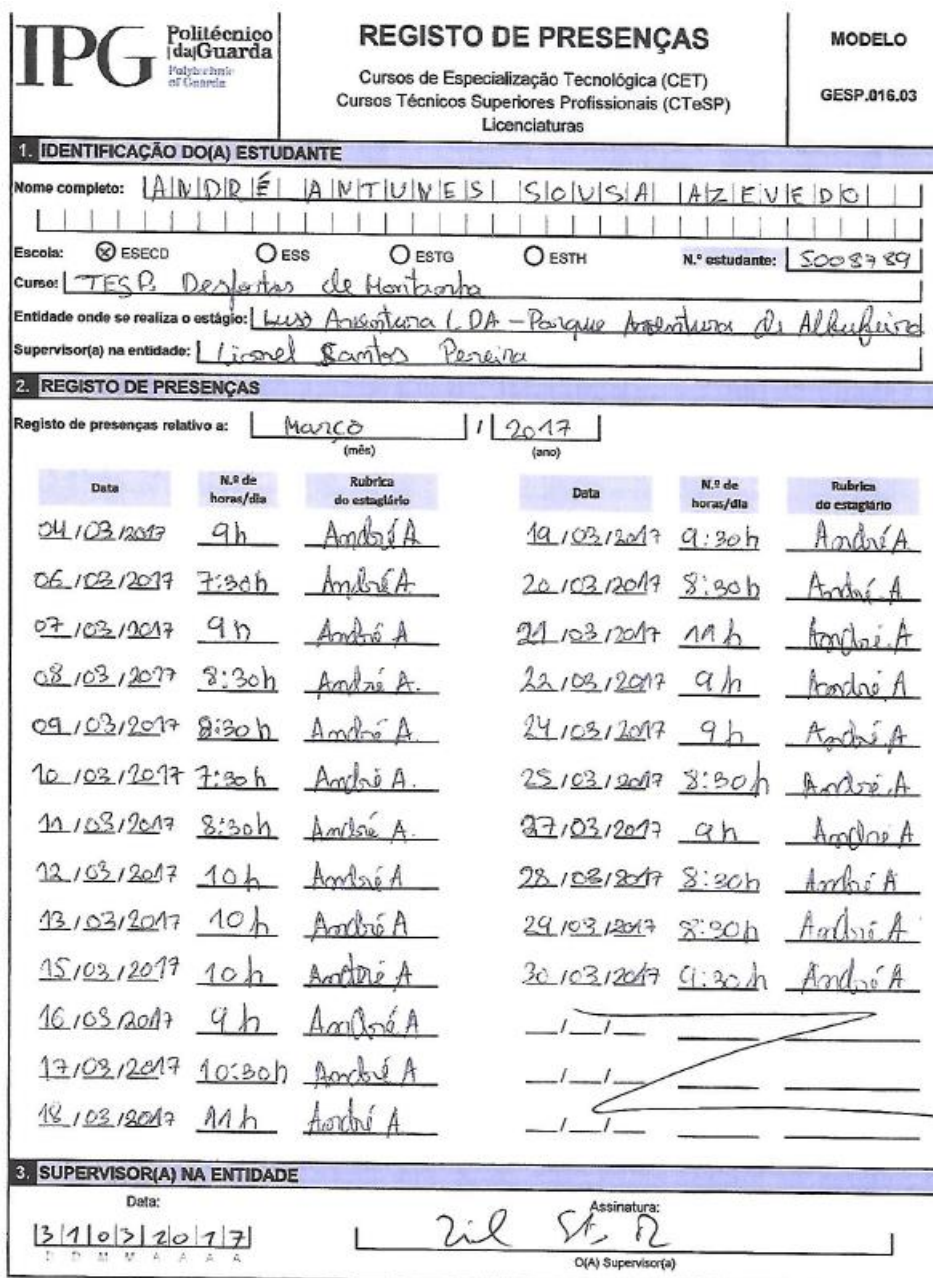 IPG Politécnico
|da|Guarda
Polytechnic
of Guarda
REGISTO DE PRESENÇAS
Cursos de Especialização Tecnológica (CET)
Cursos Técnicos Superiores Profissionais (CTeSP)
Licenciaturas
MODELO
GESP.016.03
1. IDENTIFICAÇÃO DO(A) ESTUDANTE
Nome completo: ANDRÉ ANTUNES SOUSA AZEVEDO
Escola: ESECD ESS ESTG ESTH N.º estudante: 5008789
Curso: TESP. Desportos de Montanha
Entidade onde se realiza o estágio: Luso Aventura LDA - Parque Aventura de Albufeira
Supervisor(a) na entidade: Lionel Santos Pereira
2. REGISTO DE PRESENÇAS
Registo de presenças relativo a: Março / 2017
(mês) (ano)
Data N.º de horas/dia Rubrica do estagiário Data N.º de horas/dia Rubrica do estagiário
04/03/2017 9h André A 19/03/2017 9:30h André A
06/03/2017 7:30h André A. 20/03/2017 8:30h André.A
07/03/2017 9h André A 21/03/2017 11h André.A
08/03/2017 8:30h André A. 22/03/2017 9h André A
09/03/2017 8:30h André A. 24/03/2017 9h André.A
10/03/2017 7:30h André A. 25/03/2017 8:30h André.A
11/03/2017 8:30h André A. 27/03/2017 9h André A
12/03/2017 10h André A 28/03/2017 8:30h André A
13/03/2017 10h André A 29/03/2017 8:30h André A
15/03/2017 10h André A 30/03/2017 9:30h André A
16/03/2017 9h André A __/__/__
17/03/2017 10:30h André A __/__/__
18/03/2017 11h André A __/__/__
3. SUPERVISOR(A) NA ENTIDADE
Data: Assinatura:
31032017
D D M M A A A A O(A) Supervisor(a)